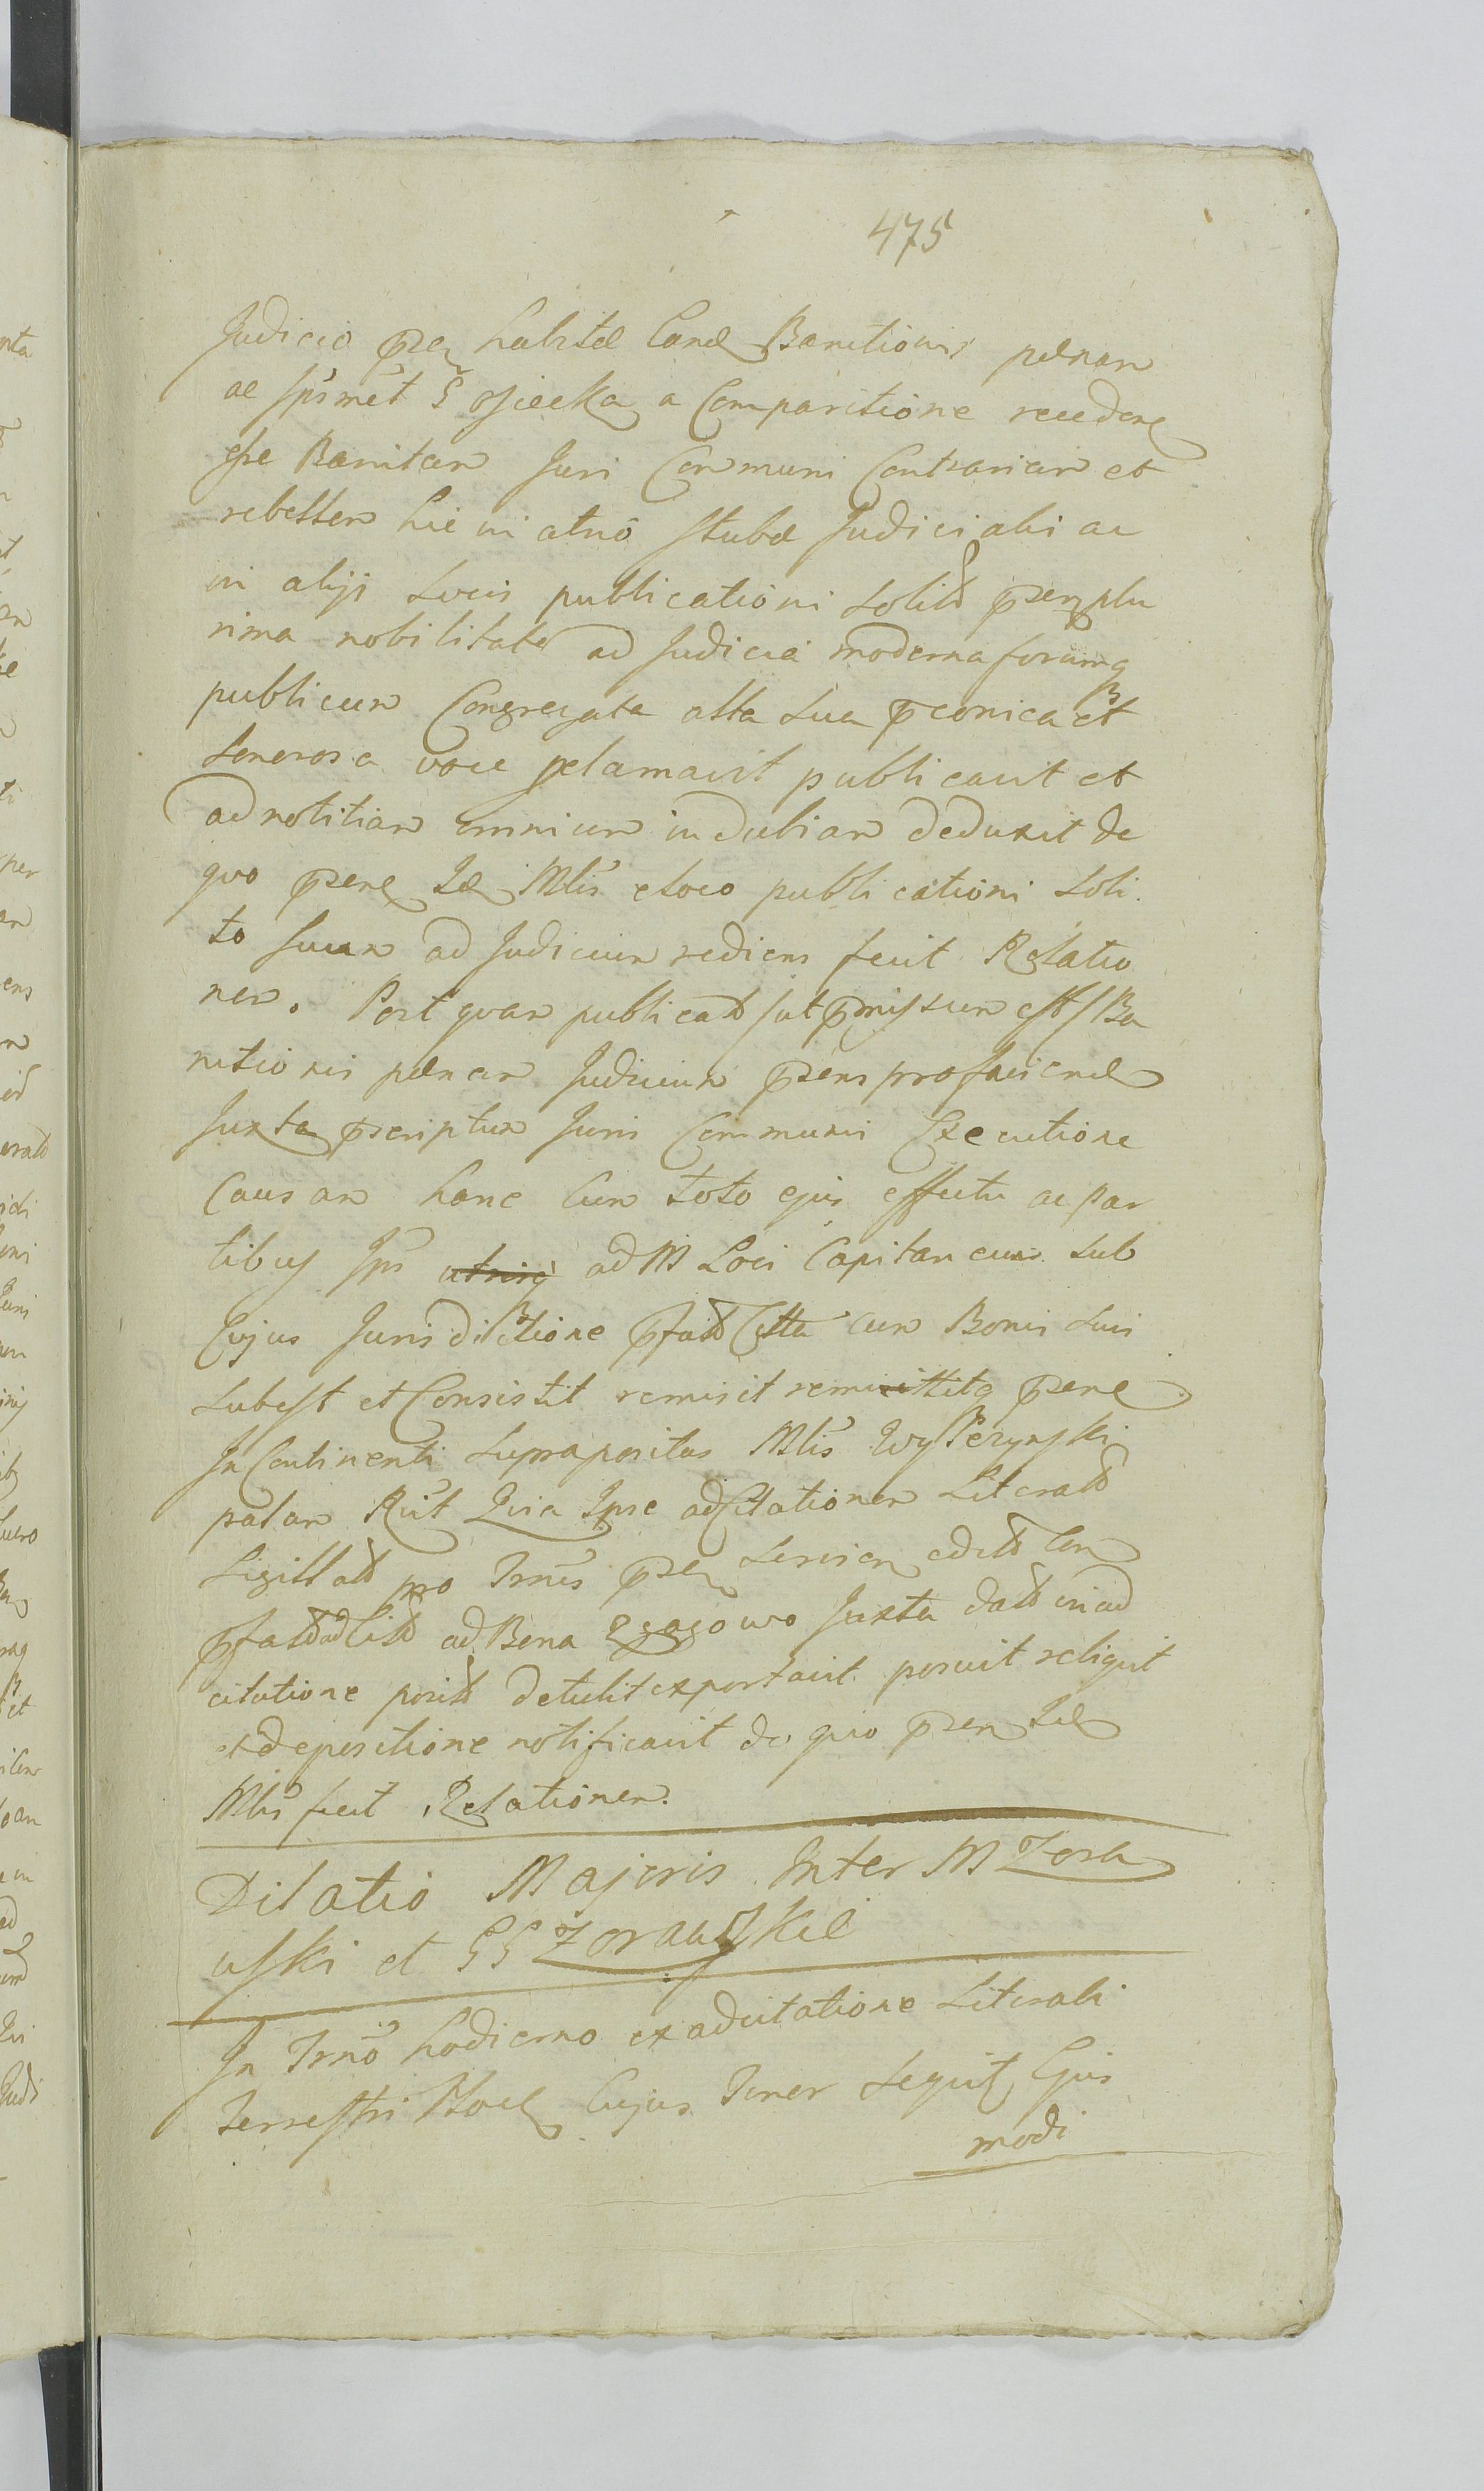 475
Judicio psen habitæ Condem Banitionis pænam
ac Ipsmet G Osiecka a Comparitione recedens
esse Banitam Juri Communi Contrariam et
rebellem hic in atrio Stubæ Judicialis ac
in alijs Locis publicationi solitis psen plu
rima nobilitate ad Judicia moderna forumq
publicum Congregata alta sua pconica et
sonorosa voce pclamavit publicavit et
ad notitiam omnium indubiam deduxit de
quo psens Idem Mlis e loco publicationi soli
to suum ad Judicium rediens fecit Relatio
nem. Post quam publicatam /ut pmissum est/ Ba
nitionis pænam Judicium psens pro faciend
Juxta pscriptum Juris Communis Executione
Causam hanc Cum toto ejus effectu ac par
tibus Ips utrisq ad M Loci Capitaneum sub
Cujus Jurisdictione pfata Citta cum Bonis suis
subest et Consistit remisit remittitq psens
In Continenti suprapositus Mlis Wyszczynski
palam Rcit Quia Ipse ad Citationem Literalem
Sigillatam pro Trnis psen Servien editam Con
pfatam ad Citatam ad Bona Zgagowo Juxta datam in ad
citatione positam detulit exportavit posuit reliquit
et de positione notificavit de quo psen Idem
Mlis fecit Relationem.
Dilatio Majoris Inter M Zora
wski et GG Zorawskie
In Trno hodierno ex adcitatione Literali
Terrestri Ploc Cujus Tenor Sequit Ejus
modi